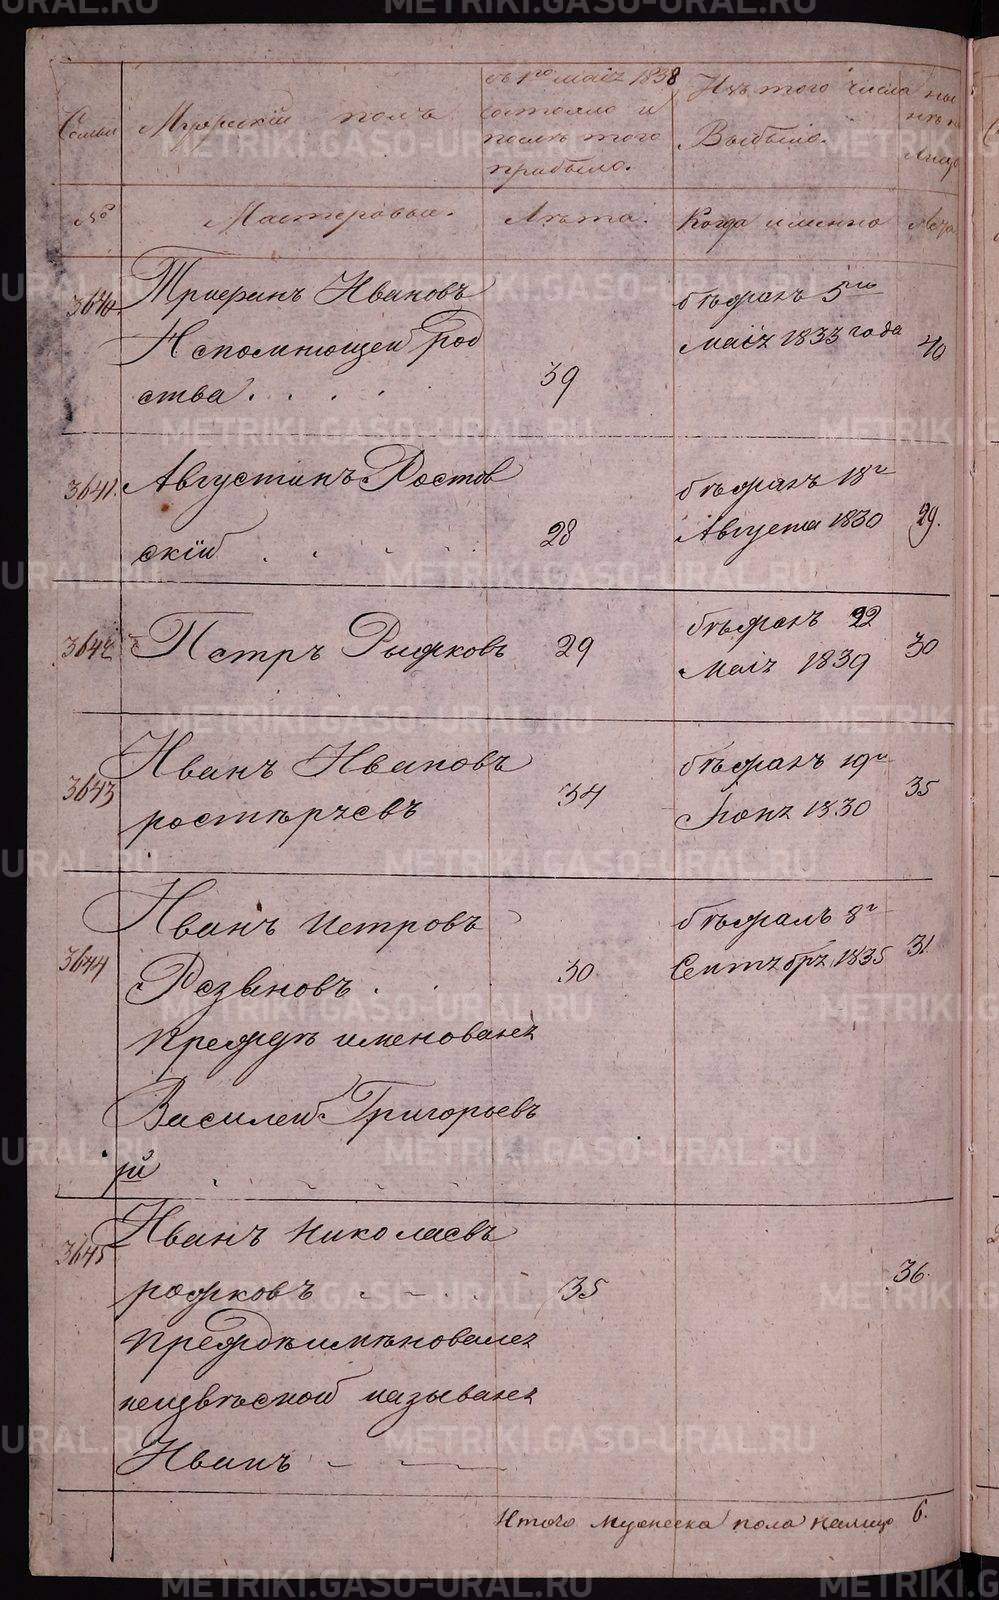 METRIKI.GASO-URAL.RU
Семьи
Мужескiй полъ
съ 1го маiя 1838
состояло и
послѣ того
прибыло.
Изъ того числа
Выбыло.
№
Мастеровые.
Лѣта.
Когда именно
Лѣта
3640
Трифанъ Ивановъ
Непомнющей род
ства. . . .
39
бѣжалъ 5го
маiя 1833 года
40
3641.
Августинъ Ростов
скiй . . . .
28
бѣжалъ 18г
Августа 1830
29.
3642
Петръ Рыжковъ
29
бѣжалъ 22
маiя 1839
30
3643
Иванъ Ивановъ
34
бѣжалъ 19г
Iюня 1830
35
3644
Иванъ Петровъ
Резановъ . .
30
прежде именовался
Василей Григорьевъ
бѣжалъ 8г
Сентября 1835
31
3645
Иванъ Николаевъ
рожковъ
35
36.
Прежде имѣновался
неизвѣсной назывался
Иванъ
Итого мужеска пола налицо 6.